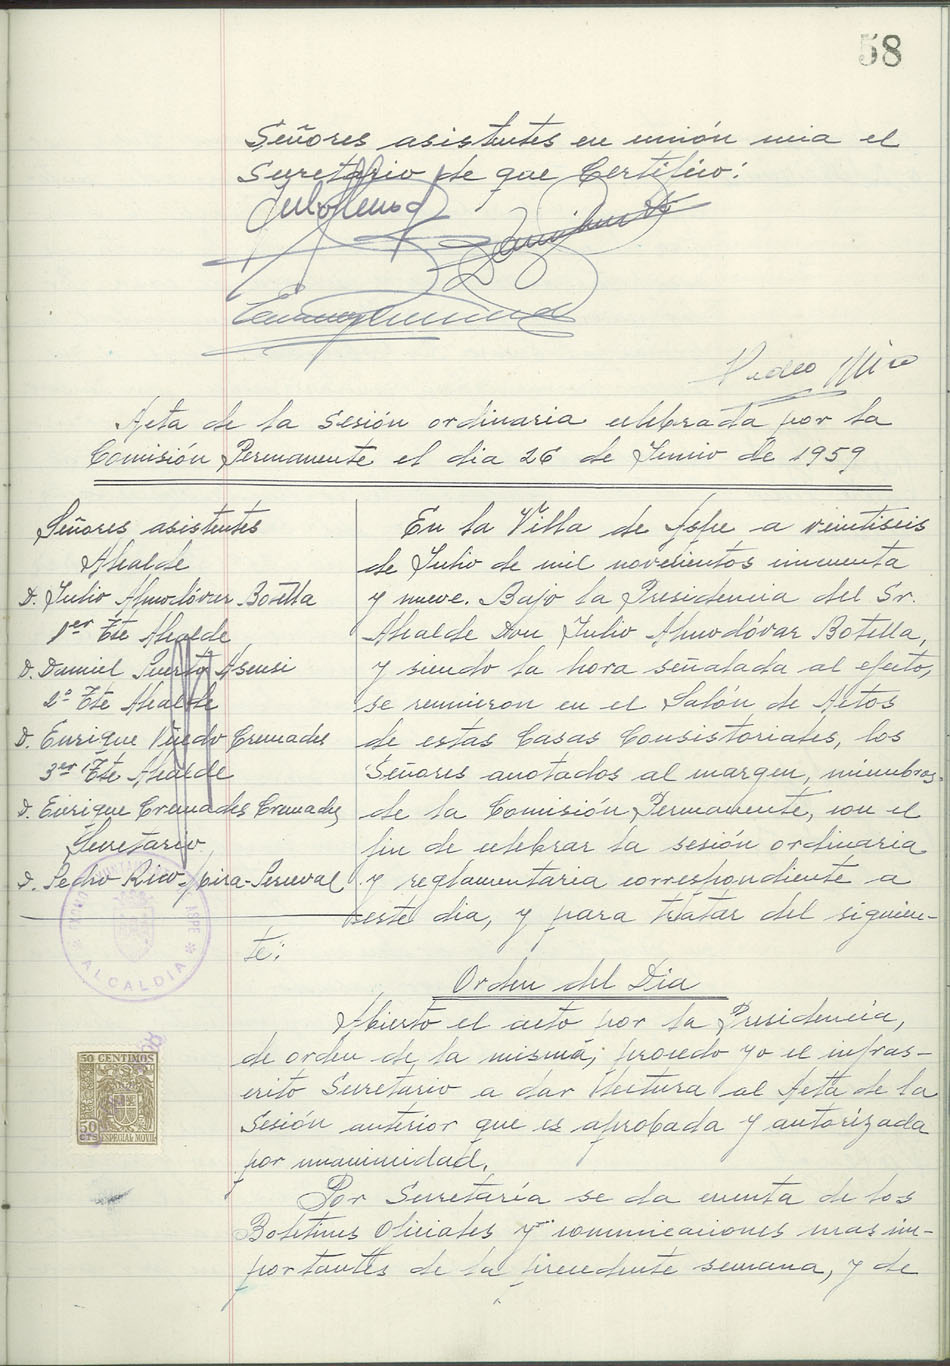 58
Señores asistentes en unión mia el
Secretario de que Certifico:
Pedro Rico
Acta de la Sesión ordinaria celebrada por la
Comisión Permanente el dia 26 de Junio de 1959
Señores asistentes
Alcalde
D. Julio Almodóvar Botella
1er Tte Alcalde
D. Daniel Puerto Asensi
2º Tte Alcalde
D. Enrique Cremades
3er Tte Alcalde
D. Enrique Cremades Cremades
Secretario
D. Pedro Rico
En la Villa de Aspe a veintiseis
de Julio de mil novecientos cincuenta
y nueve. Bajo la Presidencia del Sr.
Alcalde Don Julio Almodóvar Botella,
y siendo la hora señalada al efecto,
se reunieron en el Salón de Actos
de estas Casas Consistoriales, los
Señores anotados al margen, miembros
de la Comisión Permanente, con el
fin de celebrar la sesión ordinaria
y reglamentaria correspondiente a
este dia, y para tratar del siguien-
te:
Orden del Dia
Abierto el acto por la Presidencia,
de orden de la misma; procedo yo el infras-
crito Secretario a dar lectura al Acta de la
Sesión anterior que es aprobada y autorizada
por unanimidad.
Por Secretaría se da cuenta de los
Boletines Oficiales y comunicaciones mas im-
portantes de la precedente semana, y de
ASPE
ALCALDIA
50 CENTIMOS
50
CTS
ESPECIAL MOVIL